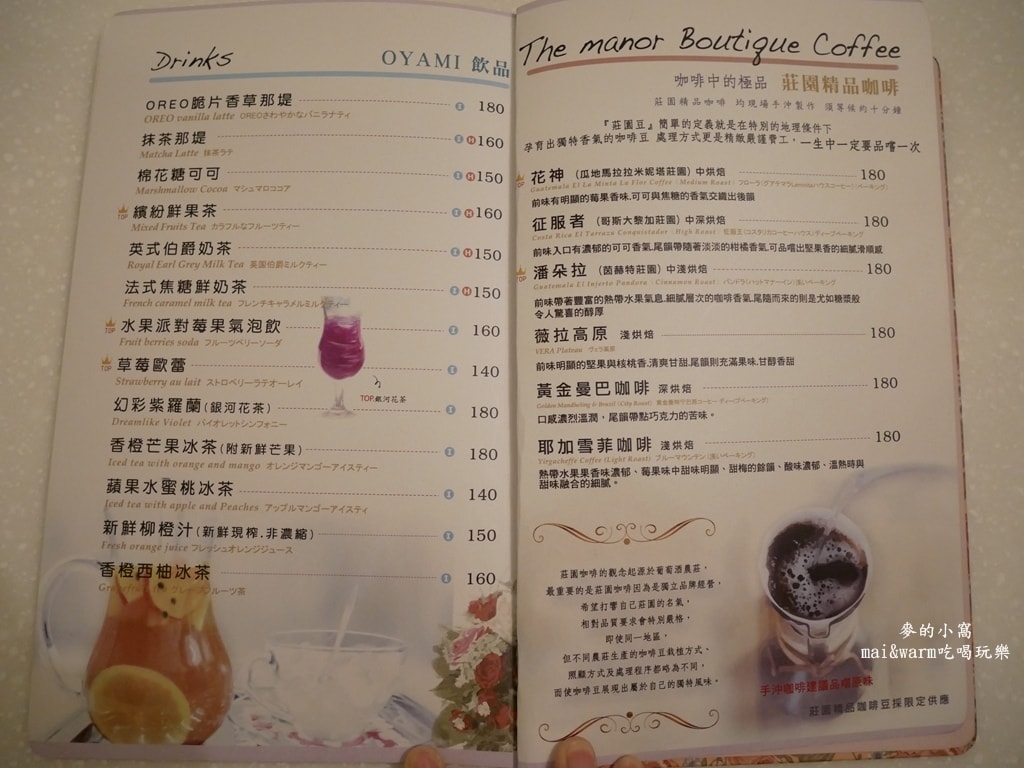 Drinks
OYAMI 飲品
OREO脆片香草那堤 I 180
OREO vanilla latte OREOさわやかなバニラナティ
抹茶那堤 I H 160
Matcha Latte 抹茶ラテ
棉花糖可可 I H 150
Marshmallow Cocoa マシュマロココア
TOP 繽紛鮮果茶 I H 160
Mixed Fruits Tea カラフルなフルーツティー
英式伯爵奶茶 I H 150
Royal Earl Grey Milk Tea 英国伯爵ミルクティー
法式焦糖鮮奶茶 I H 150
French caramel milk tea フレンチキャラメルミルクティー
TOP 水果派對莓果氣泡飲 I 160
Fruit berries soda フルーツベリーソーダ
TOP 草莓歐蕾 I 140
Strawberry au lait ストロベリーラテオーレイ
TOP.銀河花茶
幻彩紫羅蘭(銀河花茶) I 180
Dreamlike Violet バイオレットシンフォニー
香橙芒果冰茶(附新鮮芒果) I 180
Iced tea with orange and mango オレンジマンゴーアイスティー
蘋果水蜜桃冰茶 I 140
Iced tea with apple and Peaches アップルマンゴーアイスティ
新鮮柳橙汁(新鮮現榨.非濃縮) I 150
Fresh orange juice フレッシュオレンジジュース
香橙西柚冰茶 I 160
The manor Boutique Coffee
咖啡中的極品 莊園精品咖啡
莊園精品咖啡 均現場手沖製作 須等候約十分鐘
『莊園豆』簡單的定義就是在特別的地理條件下
孕育出獨特香氣的咖啡豆 處理方式更是精緻嚴謹費工，一生中一定要品嚐一次
TOP 花神 (瓜地馬拉拉米妮塔莊園) 中烘焙 180
Guatemala El La Minta La Flor Coffee (Medium Roast)
前味有明顯的莓果香味.可可與焦糖的香氣交織出後韻
征服者 (哥斯大黎加莊園) 中深烘焙 180
Costa Rica El Tarrazu Conquistador (High Roast)
前味入口有濃郁的可可香氣.尾韻帶隨著淡淡的柑橘香氣.可品嚐出堅果香的細膩滑順感
TOP 潘朵拉 (茵赫特莊園) 中淺烘焙 180
Guatemala El Injerto Pandora (Cinnamon Roast)
前味帶著豐富的熱帶水果氣息.細膩層次的咖啡香氣.尾隨而來的則是尤如糖漿般
令人驚喜的醇厚
薇拉高原 淺烘焙 180
VERA Plateau ヴェラ高原
前味明顯的堅果與核桃香.清爽甘甜.尾韻則充滿果味.甘醇香甜
黃金曼巴咖啡 深烘焙 180
Golden Mandheling & Brazil (City Roast)
口感濃烈溫潤，尾韻帶點巧克力的苦味。
耶加雪菲咖啡 淺烘焙 180
Yirgacheffe Coffee (Light Roast)
熱帶水果果香味濃郁、莓果味中甜味明顯、甜梅的餘韻、酸味濃郁、溫熱時與
甜味融合的細膩。
莊園咖啡的觀念起源於葡萄酒農莊，
最重要的是莊園咖啡因為是獨立品牌經營，
希望打響自己莊園的名氣，
相對品質要求會特別嚴格，
即使同一地區，
但不同農莊生產的咖啡豆栽植方式，
照顧方式及處理程序都略為不同，
而使咖啡豆展現出屬於自己的獨特風味。
手沖咖啡建議品嚐原味
莊園精品咖啡豆採限定供應
麥的小窩
mai&warm吃喝玩樂